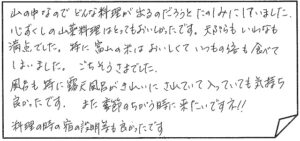 山の中なので どんな料理が出るのだろうと たのしみにしていました。
心づくしの山菜料理はとってもおいしかったです。天ぷらも いわなも
満点でした。特に 富山の米は おいしくて いつもの倍も 食べて
しまいました。ごちそうさまでした。
風呂も 特に露天風呂がきれいに されていて 入っていても 気持ち
良かったです。 また 季節のちがう時に 来たいですネ!!
料理の時の宿の説明等も良かったです